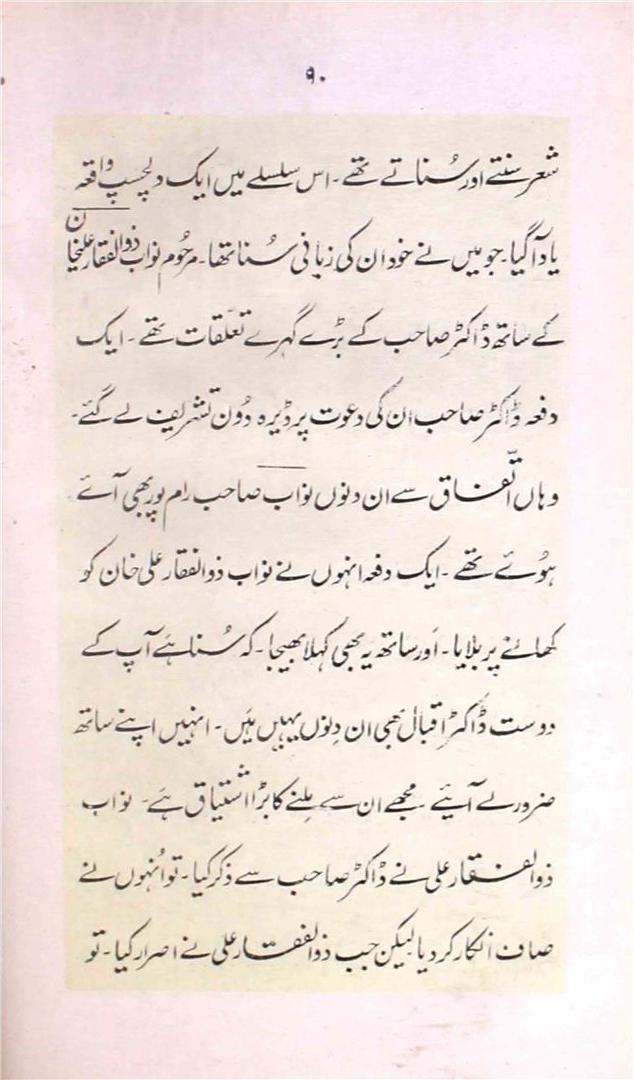 ۹۰
شعر سنتے اور سُناتے تھے۔ اس سلسلے میں ایک دلچسپ واقعہ
یاد آگیا۔ جو میں نے خود ان کی زبانی سُنا تھا۔ مرحُوم نواب ذوالفقار علیخان
کے ساتھ ڈاکٹر صاحب کے بڑے گہرے تعلّقات تھے۔ ایک
دفعہ ڈاکٹر صاحب ان کی دعوت پر ڈیرہ دُون تشریف لے گئے۔
وہاں اتّفاق سے ان دنوں نواب صاحب رام پور بھی آئے
ہوُئے تھے۔ ایک دفعہ انہوں نے نواب ذوالفقار علی خان کو
کھانے پر بلایا۔ اَور ساتھ یہ بھی کہلا بھیجا۔ کہ سُنا ہَے آپ کے
دوست ڈاکٹر اقبال بھی ان دِنوں یہیں ہیَں۔ انہیں اپنے ساتھ
ضرور لے آیئے۔ مجھے ان سے مِلنے کا بڑا اشتیاق ہَے۔ نواب
ذوالفقار علی نے ڈاکٹر صاحب سے ذکر کیا۔ تو اُنہوں نے
صاف انکار کر دیا لیکن جب ذوالفقار علی نے اصرار کیا۔ تو